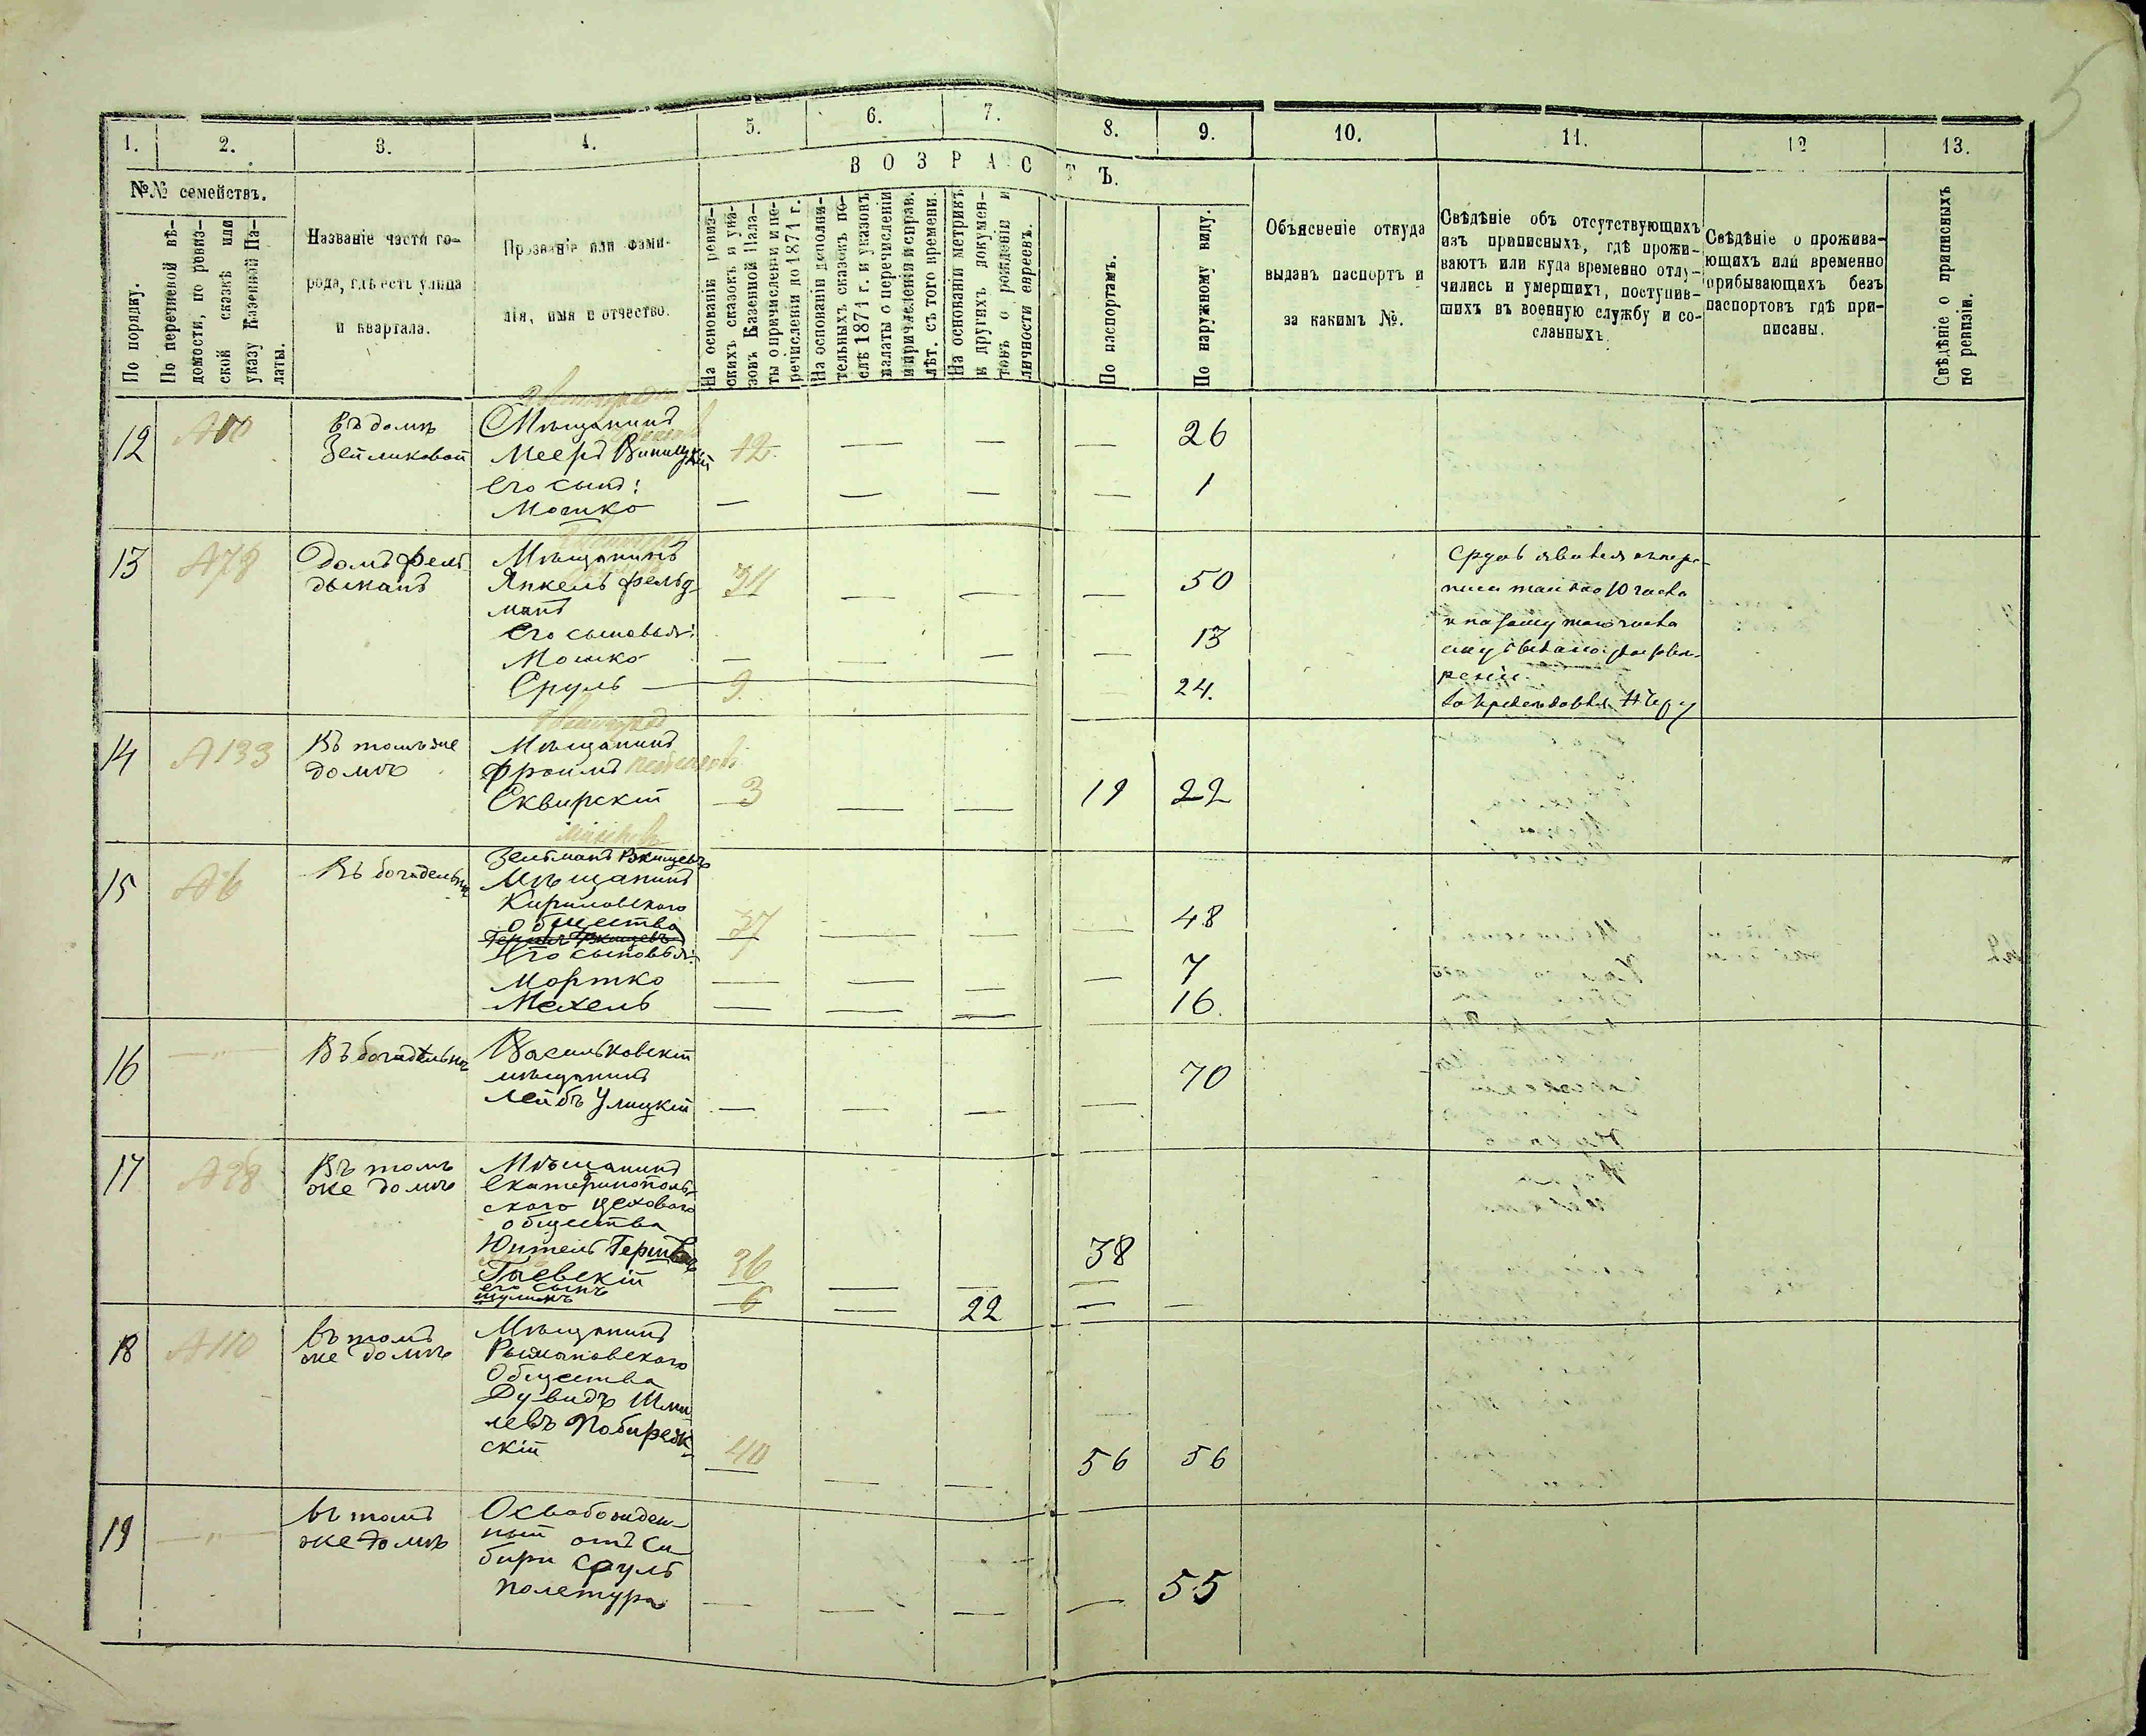 5
1. 2. 3. 4. 5. 6. 7. 8. 9. 10. 11. 12 13.
№№ семействъ.
По порядку.
По перечневой вѣ-
домости, по ревиз-
ской сказкѣ или
указу Казенной Па-
латы.
Названіе части го-
рода, гдѣ есть улица
и квартала.
Прозваніе или фами-
лія, имя и отчество.
ВОЗРАСТЪ.
На основаніи ревиз-
скихъ сказокъ и ука-
зовъ Казенной Пала-
ты о причисленіи и пе-
речисленіи по 1871 г.
На основаніи дополни-
тельныхъ сказокъ по-
слѣ 1871 г. и указовъ
палаты о перечисленіи
и причисленіи и справ.
лѣт. съ того времени.
На основаніи метрикъ
и другихъ докумен-
товъ о рожденіи и
личности евреевъ.
По паспортамъ.
По наружному виду.
Объясненіе откуда
выданъ паспортъ и
за какимъ №.
Свѣдѣніе объ отсутствующихъ
изъ приписныхъ, гдѣ прожи-
ваютъ или куда временно отлу-
чились и умершихъ, поступив-
шихъ въ военную службу и со-
сланныхъ.
Свѣдѣніе о прожива-
ющихъ или временно
прибывающихъ безъ
паспортовъ гдѣ при-
писаны.
Свѣдѣніе о приписныхъ
по ревизіи.
12
Въ домѣ
Зейликовой
Мѣщанинъ
Мееръ Виницкій
12 — — — 26
Его сынъ:
Мошко
— — — — 1
13 А78
Домъ Фель
дманъ
Мѣщанинъ
Янкель Фельд-
манъ
34 — — — 50
Его сыновья:
Мошко — — — — 13
Сруль — 9 24.
14 А133
Въ томъ же
домѣ
Мѣщанинъ
Фроимъ
Сквирскій
3 — — 19 22
15 А6
Въ богадельнѣ
Зельманъ Ржищевъ
Мѣщанинъ
Кириловского
общества
37 — — — 48
Его сыновья:
Мортко — — — — 7
Мехель — — — 16.
16 — „ —
Въ богадельнѣ
Васильковскій
мѣщанинъ
Лейбъ Улицкій
— — — — 70
17 А28
Въ томъ
же домѣ
Мѣщанинъ
Екатеринополь-
ского цехового
общества
Гаевскій
36 — — 38
его сынъ
6 — 22 — —
18 А110
въ томъ
же домѣ
Мѣщанинъ
Общества
Дувидъ Шму
левъ Побереж-
скій
40 — — 56 56
19 — „ —
въ томъ
же домѣ
Освобожден-
ный отъ Си-
бири Сруль
Полетура
— — — — 55